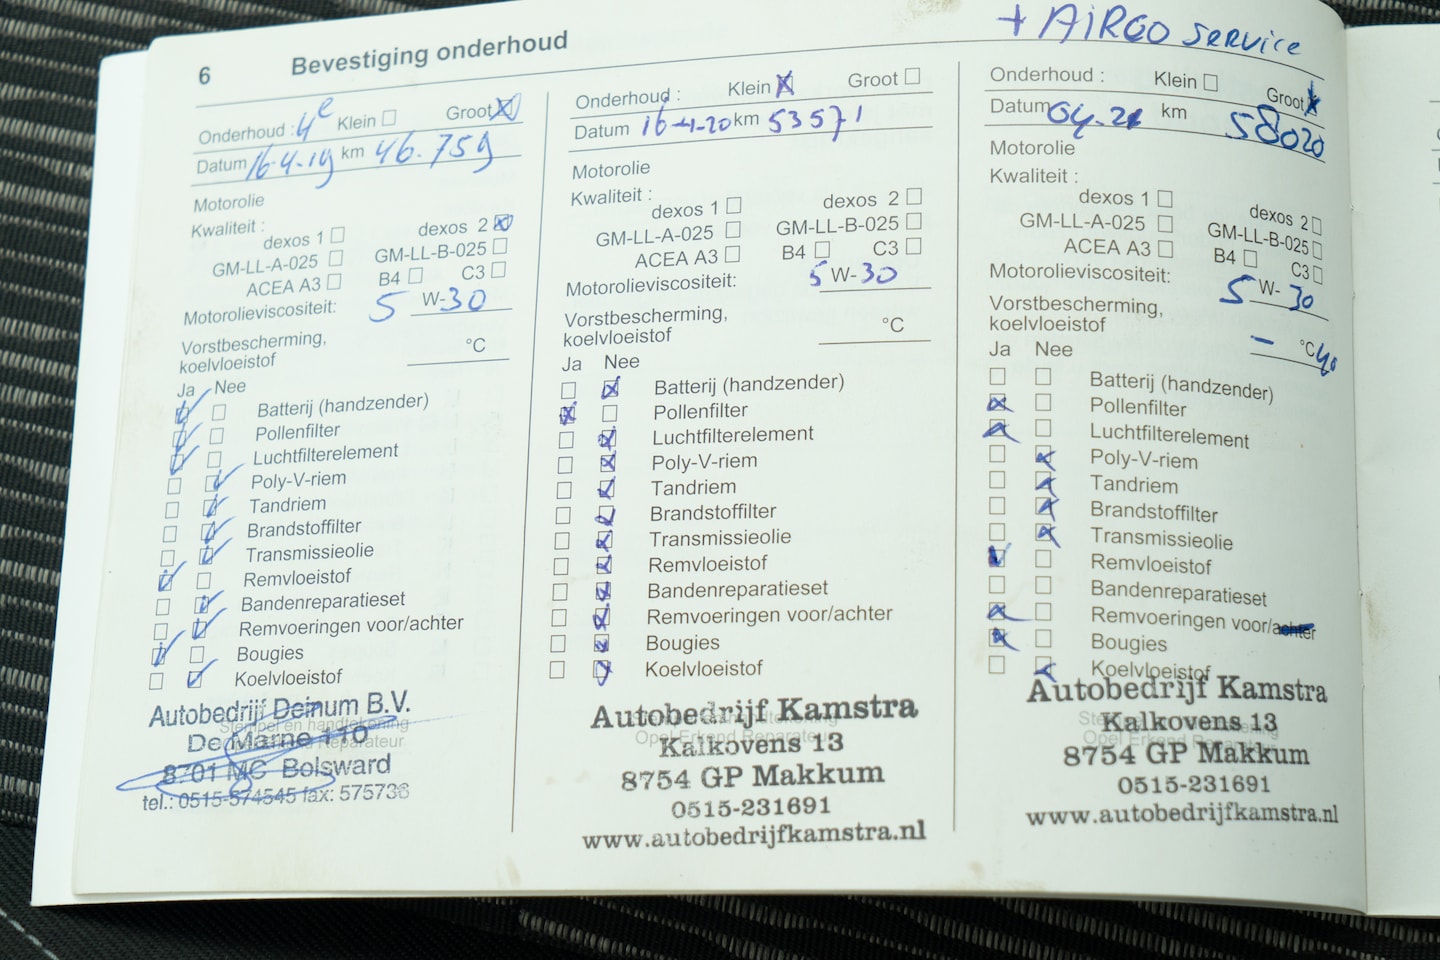 + AIRCO SERVICE
6 Bevestiging onderhoud
Onderhoud : 4e Klein Groot
Datum 16-4-19 km 46.759
Motorolie
Kwaliteit :
dexos 1 dexos 2
GM-LL-A-025 GM-LL-B-025
ACEA A3 B4 C3
Motorolieviscositeit: 5 W-30
Vorstbescherming,
koelvloeistof °C
Ja Nee
Batterij (handzender)
Pollenfilter
Luchtfilterelement
Poly-V-riem
Tandriem
Brandstoffilter
Transmissieolie
Remvloeistof
Bandenreparatieset
Remvoeringen voor/achter
Bougies
Koelvloeistof
Stempel en handtekening
Reparateur
Autobedrijf Deinum B.V.
De Marne 110
8701 MC Bolsward
tel.: 0515-574545 fax: 575736
Onderhoud : Klein Groot
Datum 16-4-20 km 53571
Motorolie
Kwaliteit :
dexos 1 dexos 2
GM-LL-A-025 GM-LL-B-025
ACEA A3 B4 C3
Motorolieviscositeit: 5 W-30
Vorstbescherming,
koelvloeistof °C
Ja Nee
Batterij (handzender)
Pollenfilter
Luchtfilterelement
Poly-V-riem
Tandriem
Brandstoffilter
Transmissieolie
Remvloeistof
Bandenreparatieset
Remvoeringen voor/achter
Bougies
Koelvloeistof
Opel Erkend Reparateur
Autobedrijf Kamstra
Kalkovens 13
8754 GP Makkum
0515-231691
www.autobedrijfkamstra.nl
Onderhoud : Klein Groot
Datum 04-21 km 58020
Motorolie
Kwaliteit :
dexos 1 dexos 2
GM-LL-A-025 GM-LL-B-025
ACEA A3 B4 C3
Motorolieviscositeit: 5 W-30
Vorstbescherming,
koelvloeistof - °C 40
Ja Nee
Batterij (handzender)
Pollenfilter
Luchtfilterelement
Poly-V-riem
Tandriem
Brandstoffilter
Transmissieolie
Remvloeistof
Bandenreparatieset
Remvoeringen voor/achter
Bougies
Koelvloeistof
Autobedrijf Kamstra
Kalkovens 13
8754 GP Makkum
0515-231691
www.autobedrijfkamstra.nl